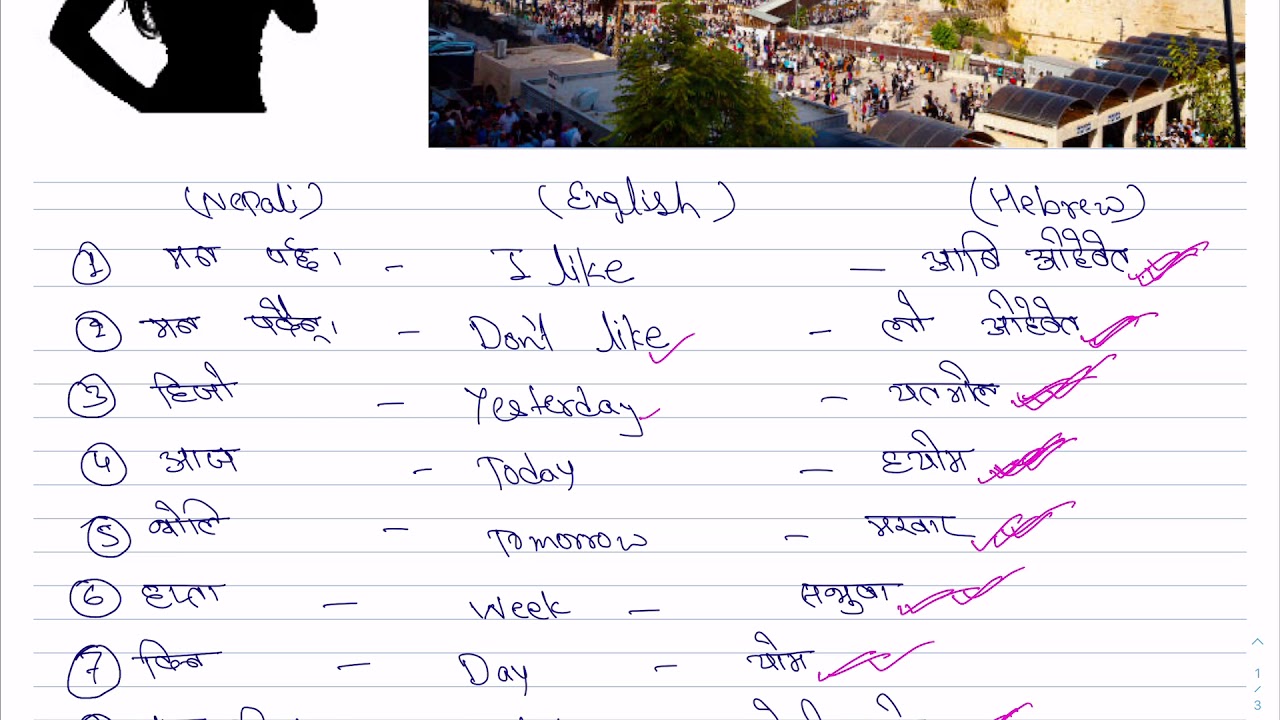 (Nepali) (English) (Hebrew)
① मन पर्छ। - I like - आनि ओहेवेत
② मन पर्दैन्। - Don't like - लो ओहेवेत
③ हिजो - Yesterday - यतमोल
④ आज - Today - हयोम
⑤ भोलि - Tomorrow - मखार
⑥ हप्ता - Week - सभुवा
⑦ दिन - Day - योम
1
/
3